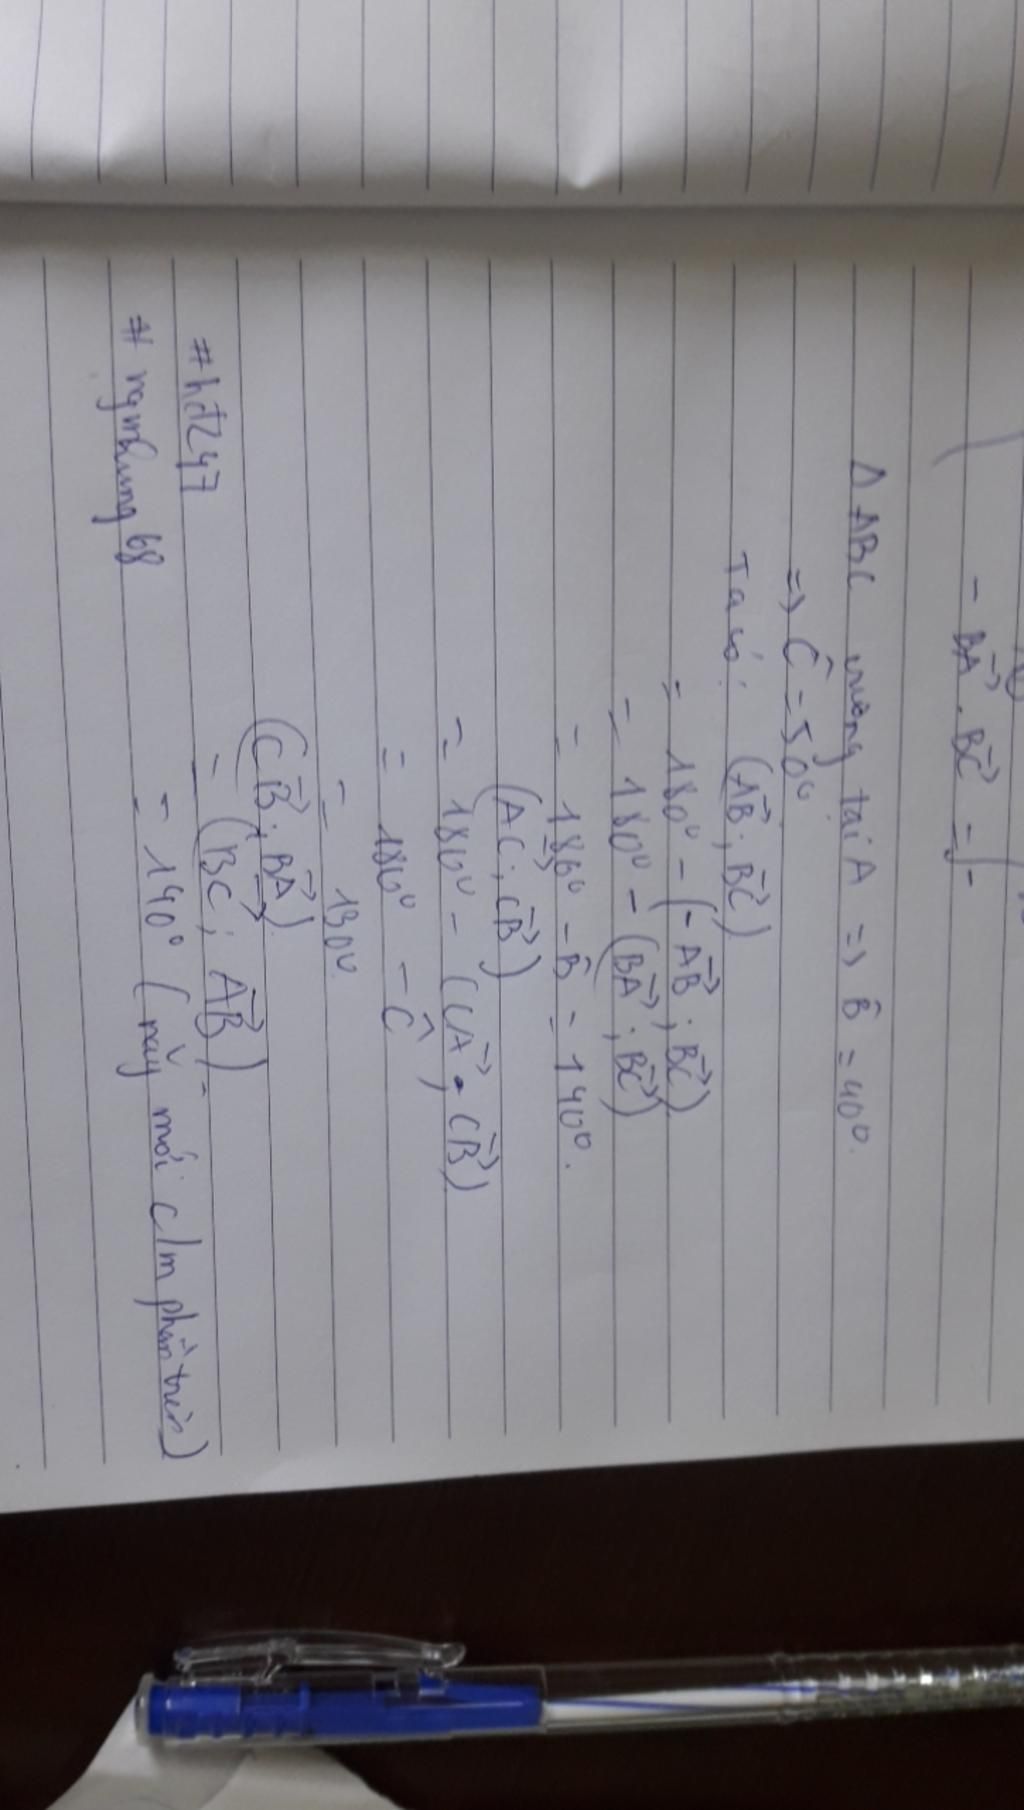 - BA⃗ . BC⃗ = -
Δ ABC vuông tại A => B̂ = 40°.
=> Ĉ = 50°
Ta có: (AB⃗ ; BC⃗)
= 180° - (-AB⃗ ; BC⃗)
= 180° - (BA⃗ ; BC⃗)
= 180° - B̂ = 140°.
(AC⃗ ; CB⃗)
= 180° - (CA⃗ , CB⃗)
= 180° - Ĉ
= 130°
(CB⃗ ; BA⃗)
= (BC⃗ ; AB⃗)
= 140° (nãy mới c/m phần trên)
#hđ247
# ngnhung68